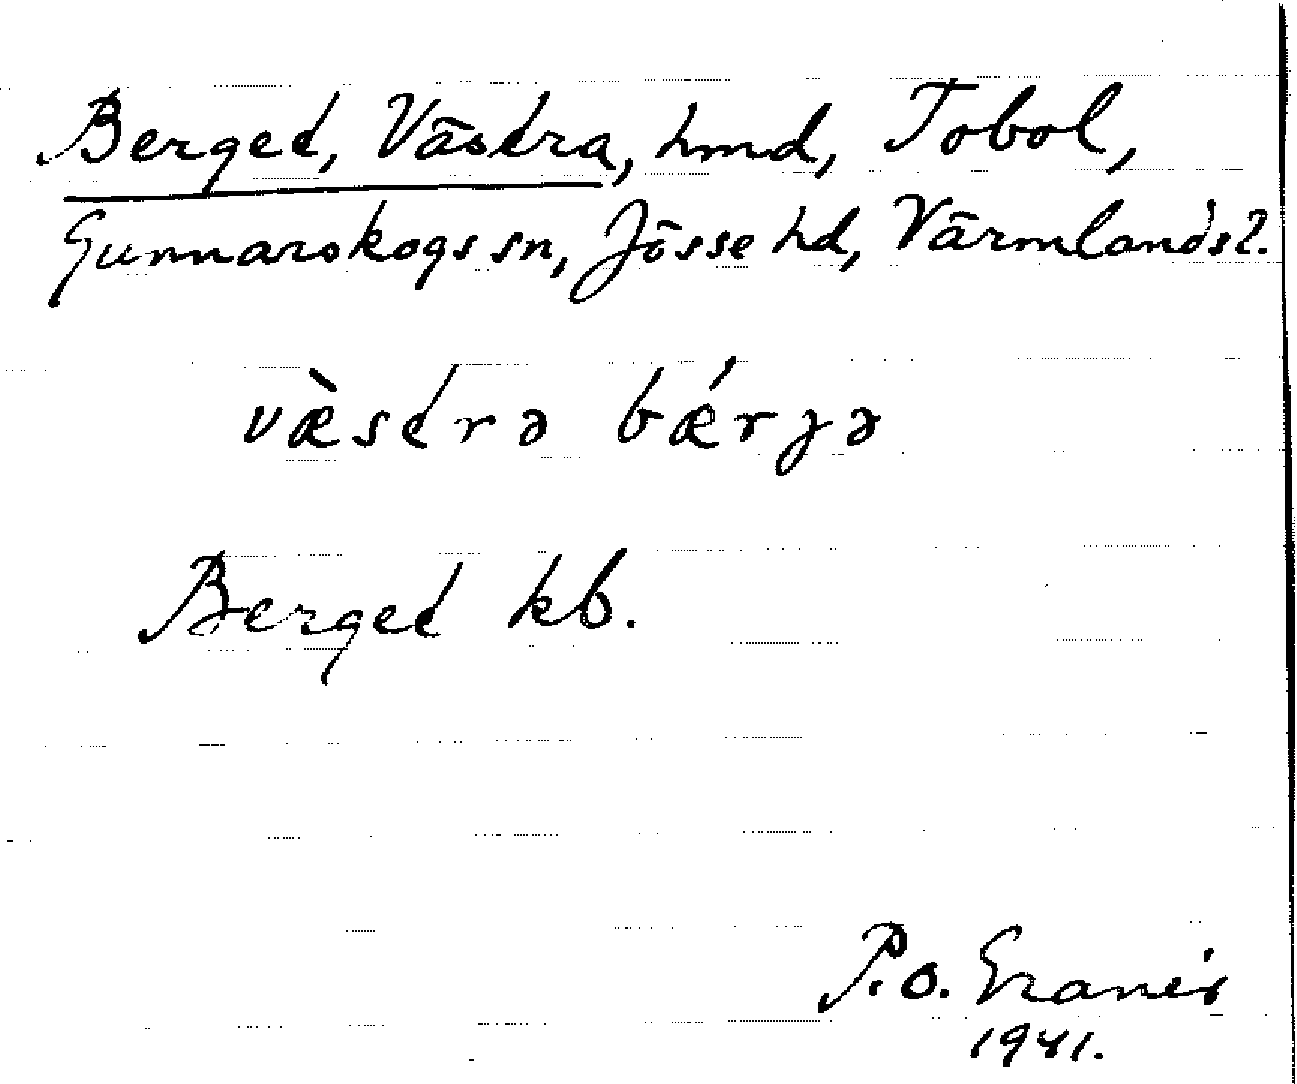 Berget, Västra, hmd, Tobol,
Gunnarskogs sn, Jösse hd, Värmlands l.
væ̀strə bǽrɟə
Berget kb.
P.O. Granér
1941.